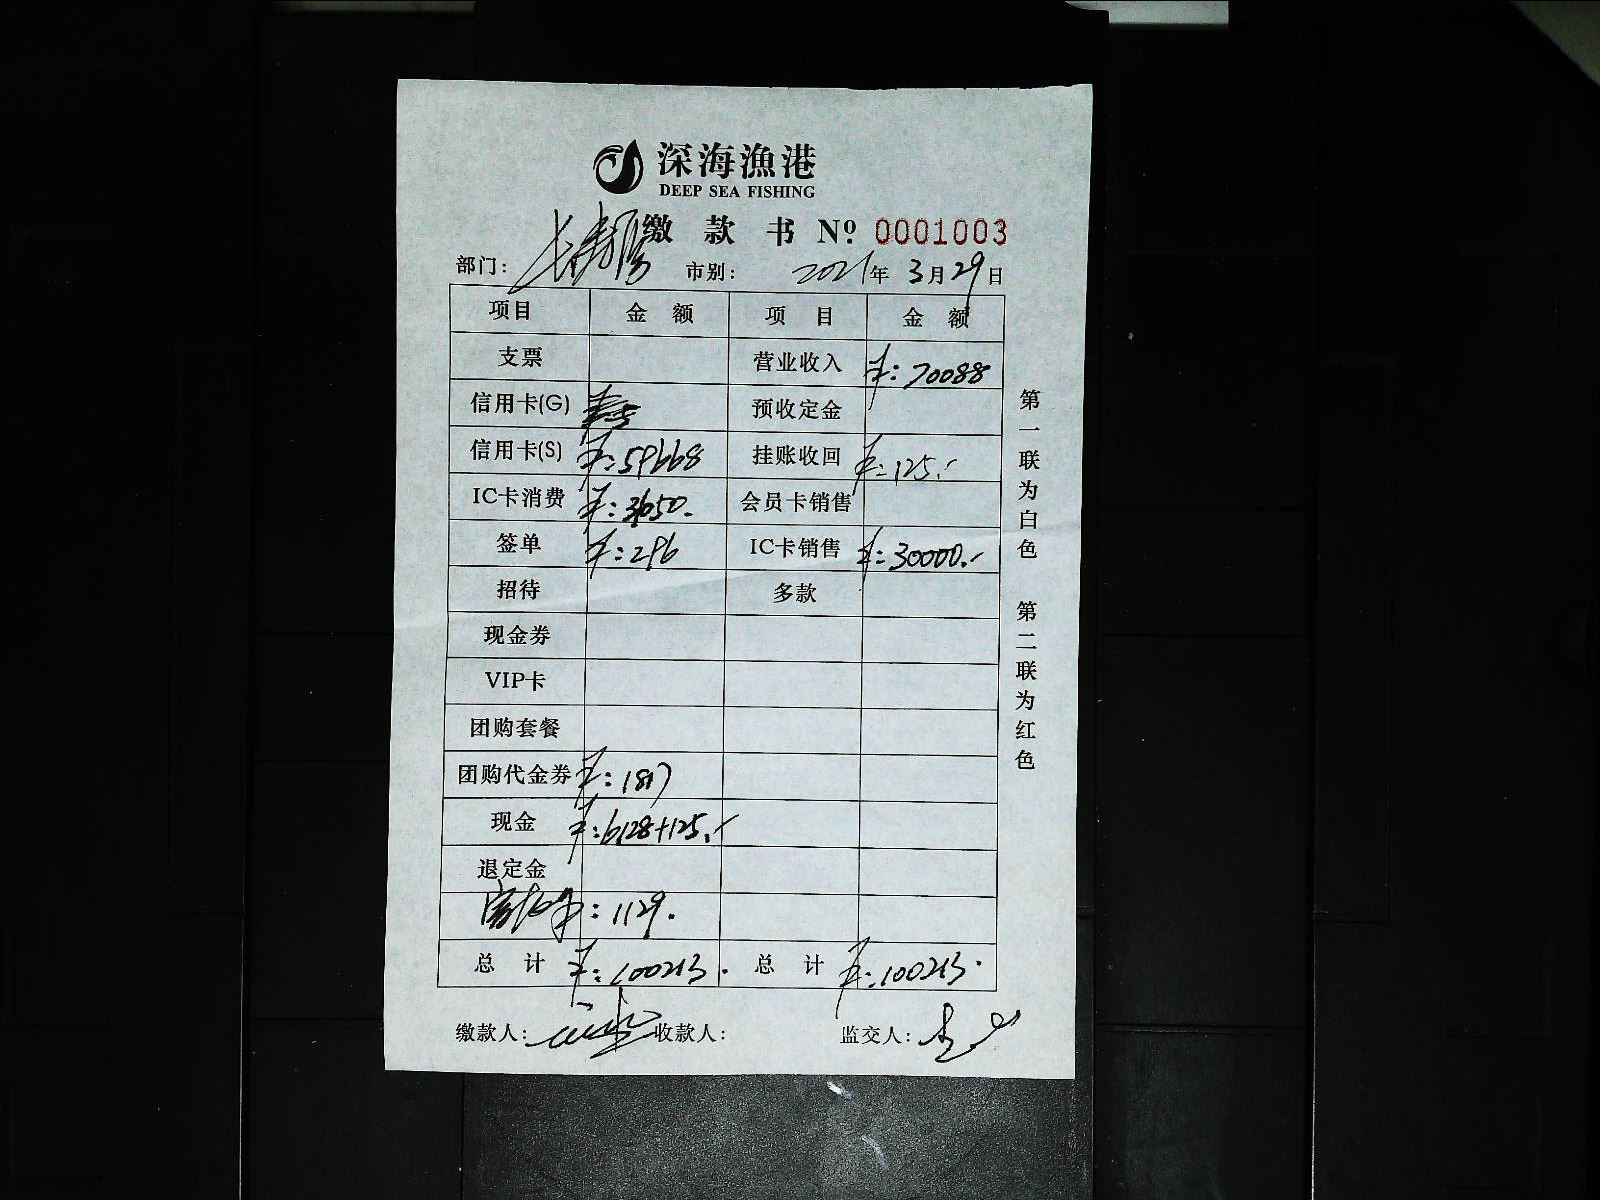 深海漁港
DEEP SEA FISHING
缴 款 书 Nº 0001003
部门: 长寿路 市别: 2021年 3月29日
项目 金 额 项 目 金 额
支票 营业收入 ¥:70088
信用卡(G) 预收定金
信用卡(S) ¥:59668 挂账收回 ¥:125.-
IC卡消费 ¥:31050. 会员卡销售
签单 ¥:296 IC卡销售 ¥:30000.-
招待 多款
现金券
VIP卡
团购套餐
团购代金券 ¥:1817
现金 ¥:6128+125.-
退定金
¥:1129.
总 计 ¥:100213. 总 计 ¥:100213.
缴款人: 收款人: 监交人:
第一联为白色 第二联为红色